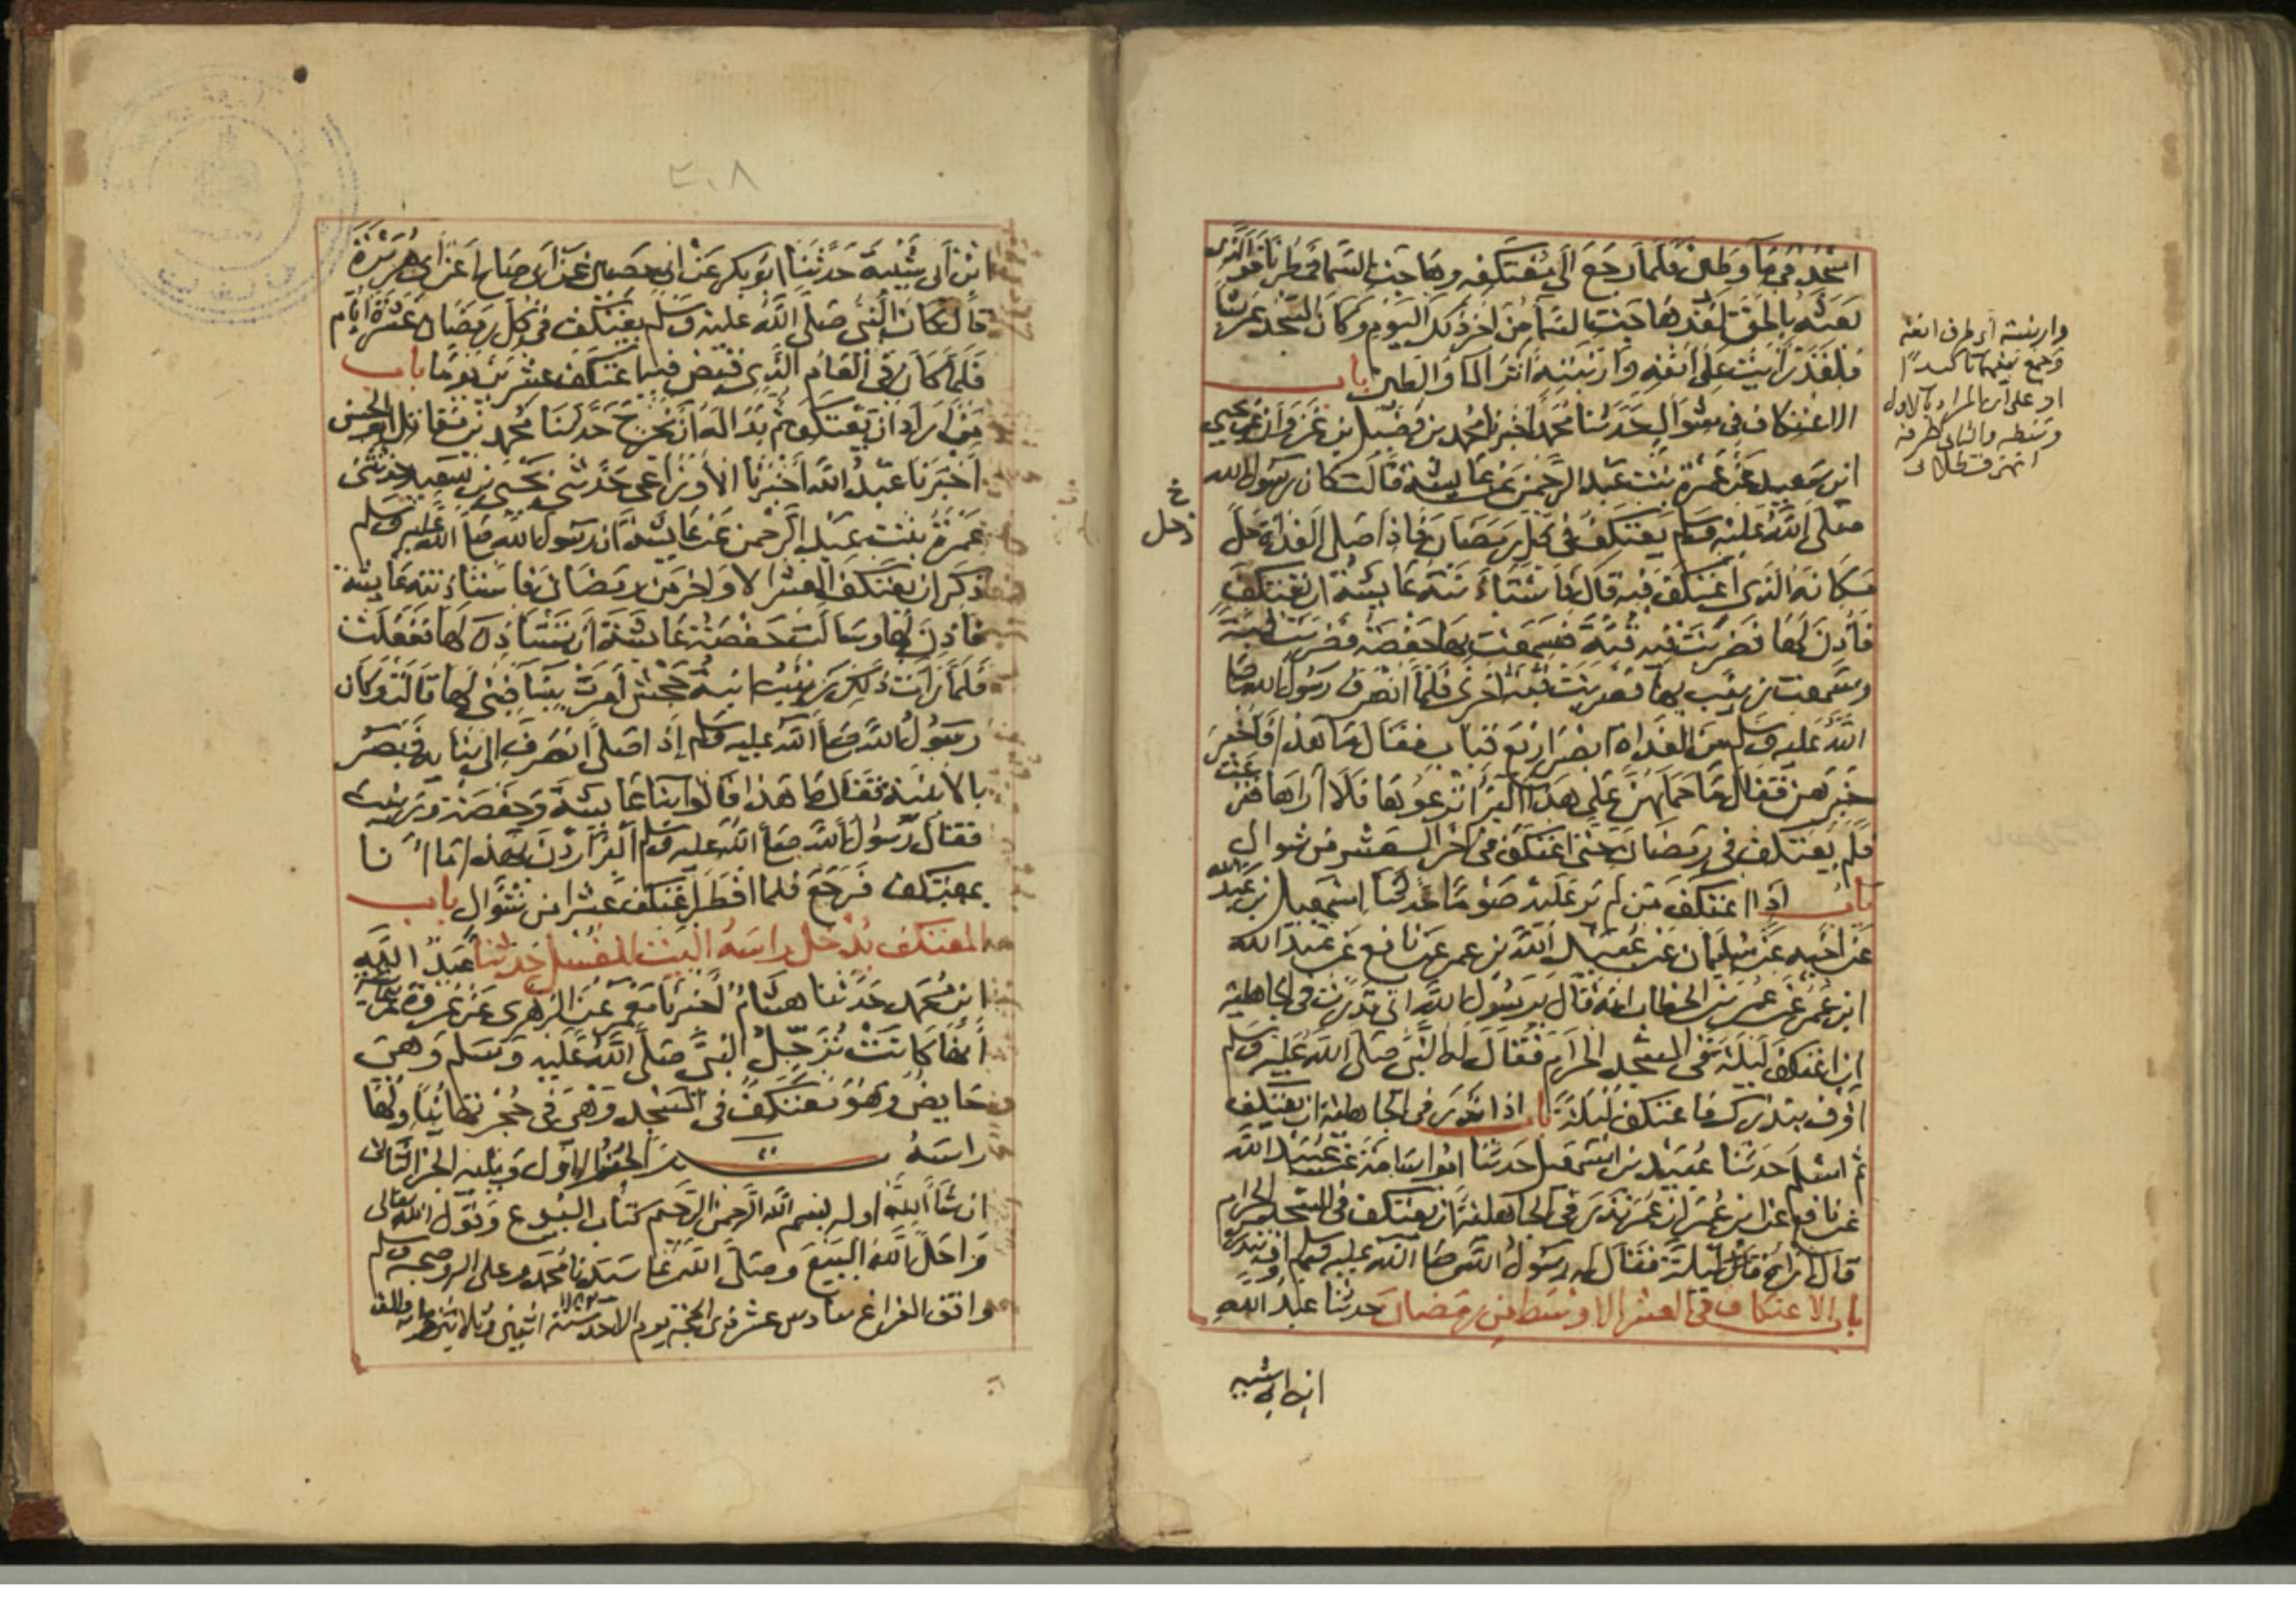 اسجد في ماء وطين فلما رجع الى معتكفه وهاجت السماء فمطرنا فوالذي
بعثه بالحق لقد هاجت السماء من اخر ذلك اليوم وكان المسجد عريشا
فلقد رايت على انفه وارنبته اثر الماء والطين باب
الاعتكاف في شوال حدثنا محمد اخبرنا محمد بن فضيل بن غزوان عن يحيى
ابن سعيد عن عمرة بنت عبد الرحمن عن عايشة قالت كان رسول الله
صلى الله عليه وسلم يعتكف في كل رمضان فاذا صلى الغداة حل
مكانه الذي اعتكف فيه قال فاستاذنته عايشة ان تعتكف
فاذن لها فضربت فيه قبة فسمعت بها حفصة فضربت قبة
وسمعت زينب بها فضربت قبة اخرى فلما انصرف رسول الله صلى
الله عليه وسلم من الغداة ابصر اربع قباب فقال ما هذا فاخبر
خبرهن فقال ما حملهن على هذا آلبر انزعوها فلا اراها فنزعت
فلم يعتكف في رمضان حتى اعتكف في اخر العشر من شوال
باب اذا اعتكف من لم ير عليه صوما حدثنا اسمعيل بن عبد الله
عن اخيه عن سليمان عن عبيد الله بن عمر عن نافع عن عبد الله
ابن عمر عن عمر بن الخطاب انه قال يرسول الله اني نذرت في الجاهلية
ان اعتكف ليلة في المسجد الحرام فقال له النبي صلى الله عليه وسلم
اوف بنذرك فاعتكف ليلة باب اذا نذر في الجاهلية ان يعتكف
ثم اسلم حدثنا عبيد بن اسمعيل حدثنا ابو اسامة عن عبيد الله
عن نافع عن ابن عمر ان عمر نذر في الجاهلية ان يعتكف في المسجد الحرام
قال اراه قال ليلة فقال له رسول الله صلى الله عليه وسلم اوف بنذرك
باب الاعتكاف في العشر الاوسط من رمضان حدثنا عبد الله
ابن ابي شيبة
وارنبته اي طرف انفه
وجمع بينهما تاكيدا
او على ان المراد بالاول
وسطه والثاني طرفه
انتهى قسطلاني
خ
دخل
٣٠٨
ابن ابي شيبة حدثنا ابو بكر عن ابي حصين عن ابي صالح عن ابي هريرة
قال كان النبي صلى الله عليه وسلم يعتكف في كل رمضان عشرة ايام
فلما كان في العام الذي قبض فيه اعتكف عشرين يوما باب
من اراد ان يعتكف ثم بدا له ان يخرج حدثنا محمد بن مقاتل ابو الحسن
اخبرنا عبد الله اخبرنا الاوزاعي حدثني يحيى بن سعيد حدثتني
عمرة بنت عبد الرحمن عن عايشة ان رسول الله صلى الله عليه وسلم
ذكر ان يعتكف العشر الاواخر من رمضان فاستاذنته عايشة
فاذن لها وسالت حفصة عائشة ان تستاذن لها ففعلت
فلما رات ذلك زينب ابنة جحش امرت ببنا فبني لها قالت وكان
رسول الله صلى الله عليه وسلم اذا صلى انصرف الى بنايه فبصر
بالابنية فقال ما هذا قالوا بنا عايشة وحفصة وزينب
فقال رسول الله صلى الله عليه وسلم آلبر اردن بهذا ما انا
بمعتكف فرجع فلما افطر اعتكف عشرا من شوال باب
المعتكف يدخل راسه البيت للغسل حدثنا عبد الله
ابن محمد حدثنا هشام اخبرنا معمر عن الزهري عن عروة عن عايشة
انها كانت ترجل النبي صلى الله عليه وسلم وهي
حايض وهو معتكف في المسجد وهي في حجرتها يناولها
راسه تم الجزء الاول ويليه الجز الثاني
ان شاء الله اوله بسم الله الرحمن الرحيم كتاب البيوع وقول الله تعالى
واحل الله البيع وصلى الله على سيدنا محمد وعلى اله وصحبه وسلم
وافق الفراغ سادس عشر ذي الحجة يوم الاحد سنة اثنين وثلاثين ومائة والف